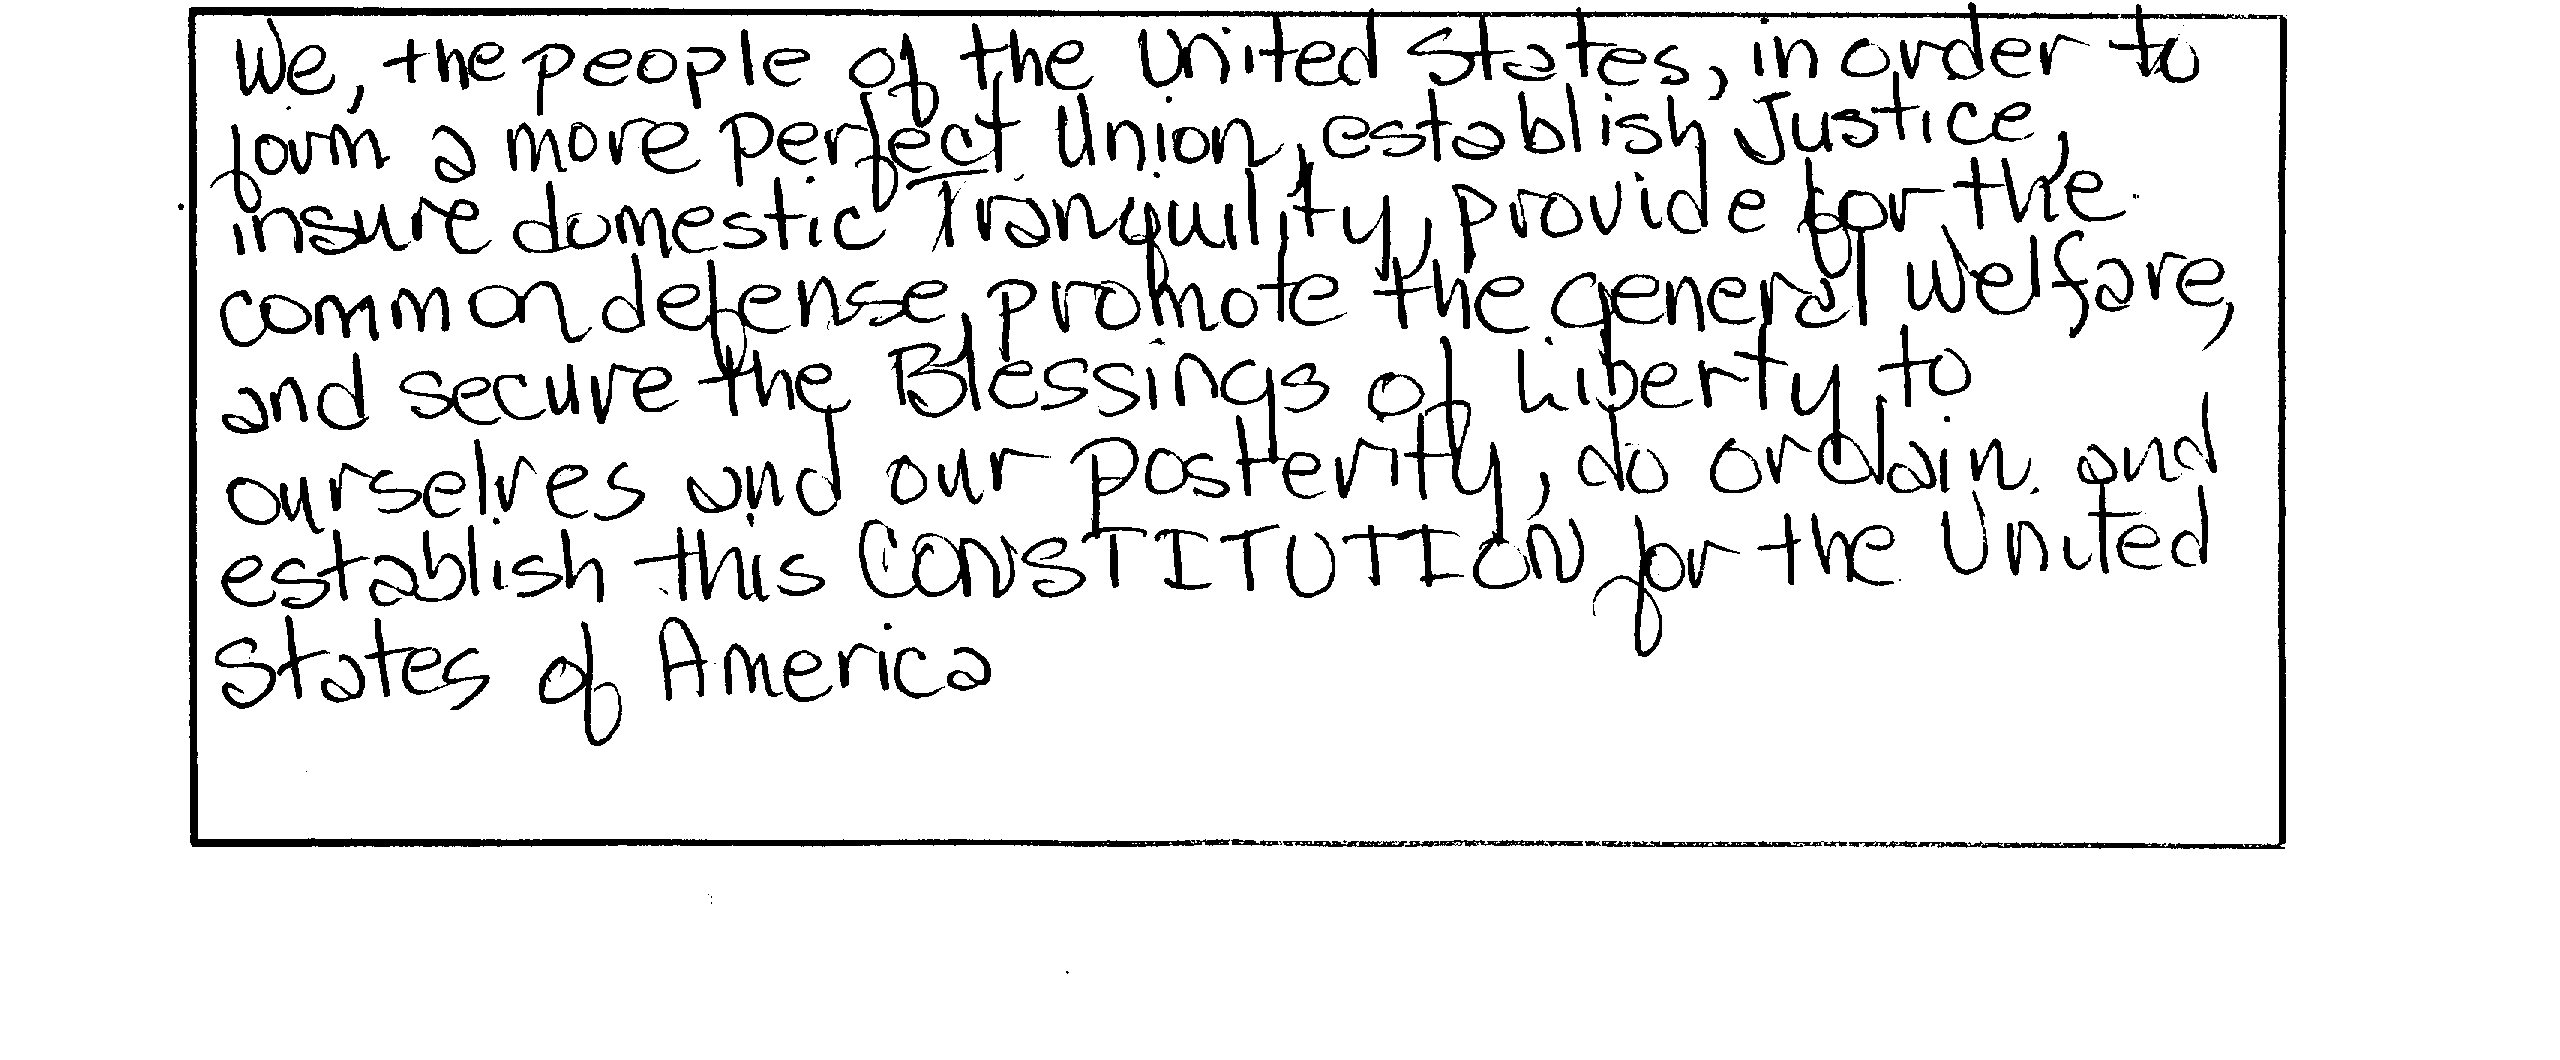 We, the people of the United States, in order to
form a more perfect Union, establish Justice,
insure domestic Tranquility, provide for the
common defense, promote the general Welfare,
and secure the Blessings of Liberty to
ourselves and our posterity, do ordain and
establish this CONSTITUTION for the United
States of America